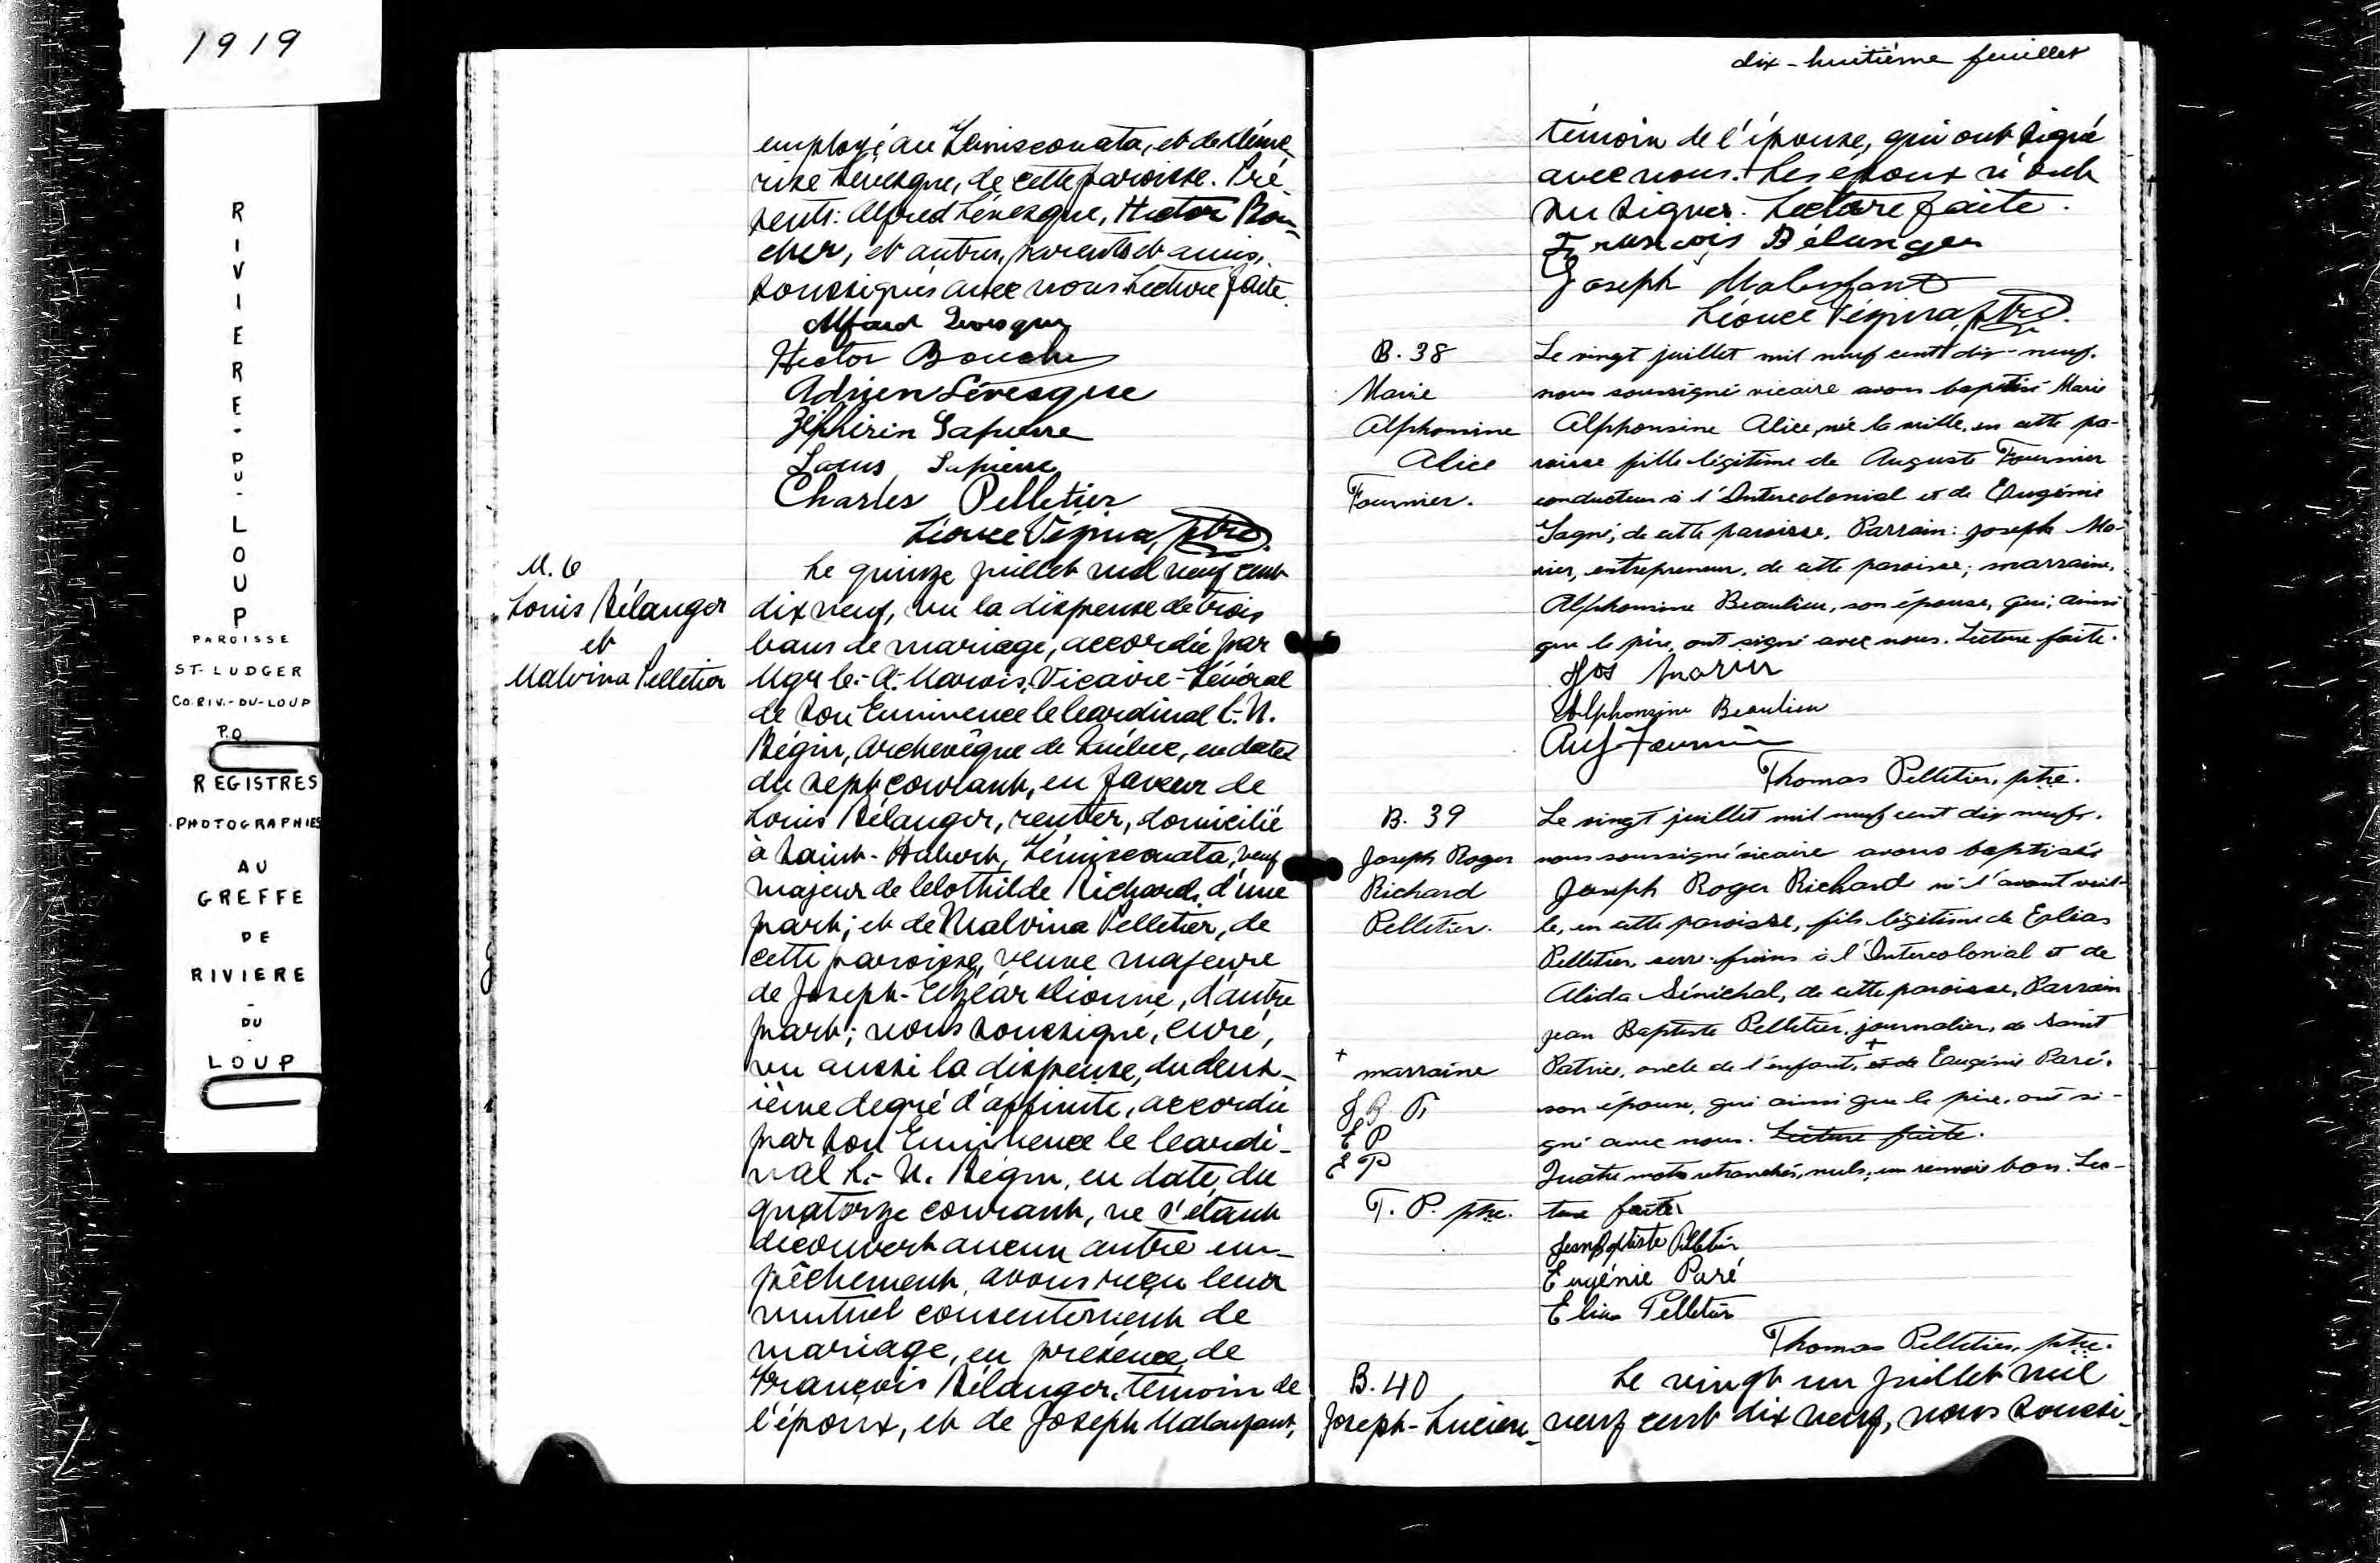 1919
RIVIERE-DU-LOUP
PAROISSE
ST-LUDGER
CO. RIV.-DU-LOUP
P.Q.
REGISTRES
PHOTOGRAPHIES
AU
GREFFE
DE
RIVIERE
-
DU
-
LOUP
employé au Témiscouata, et de Déme-
rise Lévesque, de cette paroisse. Pré-
sents: Alfred Lévesque, Hector Bou-
cher, et autres, parents et amis,
soussignés avec nous Lecture faite.
Alfred Levesque
Hector Boucher
Adrien Lévesque
Zéphirin Lapierre
Louis Lapierre
Charles Pelletier
Léonce Vézina, ptre.
M. 6
Louis Bélanger
et
Malvina Pelletier
Le quinze juillet mil neuf cent
dix neuf, vu la dispense de trois
bans de mariage, accordée par
Mgr C.-A. Marois, Vicaire-Général
de Son Eminence le Cardinal L.-N.
Bégin, Archevêque de Québec, en date
du sept courant, en faveur de
Louis Bélanger, rentier, domicilié
à Saint-Hubert, Témiscouata, veuf
majeur de Clothilde Richard, d'une
part; et de Malvina Pelletier, de
cette paroisse, veuve majeure
de Joseph-Elzéar Dionne, d'autre
part; nous soussigné, curé,
vu aussi la dispense, du deux-
ième degré d'affinité, accordée
par Son Eminence le Cardi-
nal L.-N. Bégin, en date, du
quatorze courant, ne s'étant
découvert aucun autre em-
pêchement, avons reçu leur
mutuel consentement de
mariage, en présence, de
François Bélanger, témoin de
l'époux, et de Joseph Malenfant,
dix-huitième feuillet
témoin de l'épouse, qui ont signé
avec nous. Les époux n'ont
su signer. Lecture faite.
François Bélanger
Joseph Malenfant
Léonce Vézina, ptre.
B. 38
Marie
Alphonsine
Alice
Fournier.
Le vingt juillet mil neuf cent dix-neuf.
nous soussigné vicaire avons baptisé Marie
Alphonsine Alice, née la veille, en cette pa-
roisse fille légitime de Auguste Fournier
conducteur à l'Intercolonial et de Eugénie
Gagné, de cette paroisse. Parrain: Joseph Mo-
rier, entrepreneur, de cette paroisse; marraine,
Alphonsine Beaulieu, son épouse, qui, ainsi
que le père, ont signé avec nous. Lecture faite.
Jos
Alphonsine Beaulieu
Aug Fournier
Thomas Pelletier, ptre.
B. 39
Joseph Roger
Richard
Pelletier.
Le vingt juillet mil neuf cent dix neuf.
nous soussigné vicaire avons baptisés
Joseph Roger Richard né l'avant veil-
le, en cette paroisse, fils légitime de Elias
Pelletier serre-freins à l'Intercolonial et de
Alida Sénéchal, de cette paroisse, Parrain
Jean Baptiste Pelletier, journalier, de Saint
Patrice, oncle de l'enfant, + et de Eugénie Paré,
son épouse, qui ainsi que le père, ont si-
gné avec nous. Lecture faite.
Quatre mots retranchés, nuls; un renvoi bon. Lec-
ture faite
+
marraine
J B P
E P
E P
T. P. ptre.
Jean Baptiste Pelletier
Eugénie Paré
Elias Pelletier
Thomas Pelletier, ptre.
B. 40
Joseph-Lucien-
Le vingt un juillet mil
neuf cent dix neuf, nous soussi-